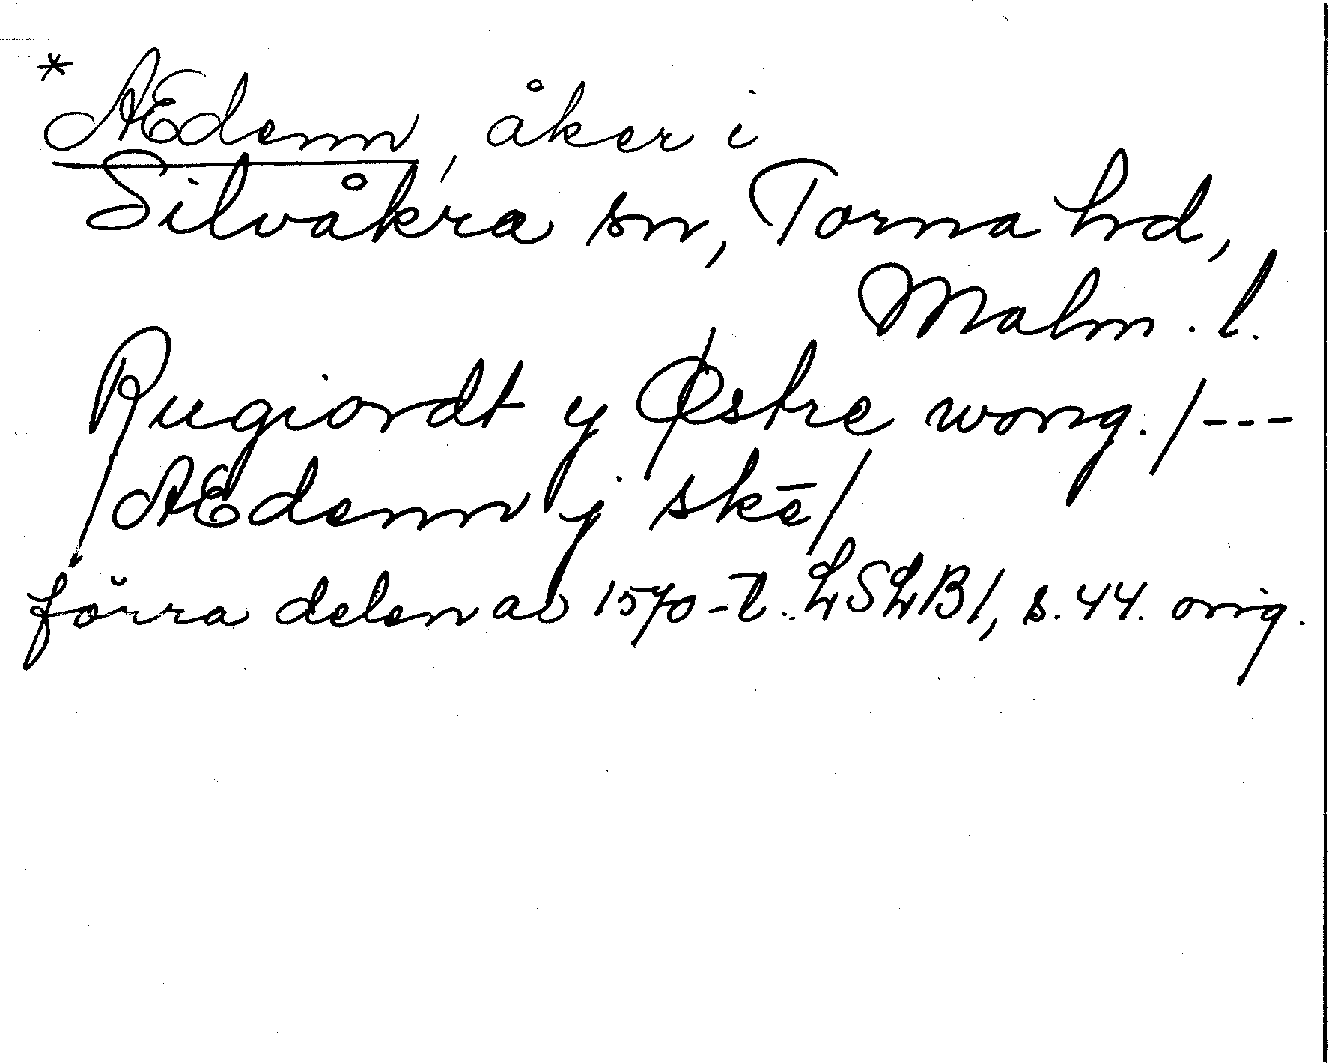 *ÆDenn, åker i
Silvåkra sn, Torna hd,
Malm. l.
Rugiordt y Østre wong. / ---
/ Ædenn j skē /
förra delen av 1570-t. LSLB 1, s. 44. orig.